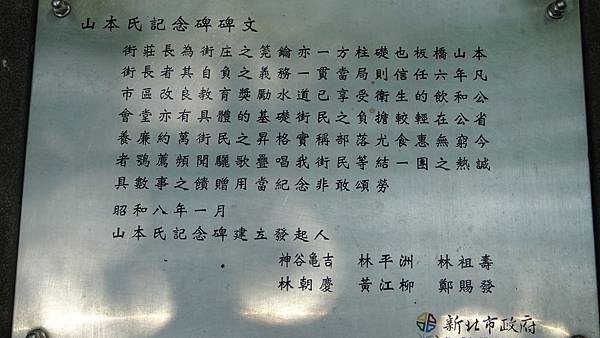 山本氏記念碑碑文
街莊長為街庄之筦鑰亦一方柱礎也板橋山本
街長者其自負之義務一貫當局則信任六年凡
市區改良教育獎勵水道已享受衛生的飲和公
會堂亦有具體的基礎街民之負擔較輕在公省
養廉約萬街民之昇格實稱部落尤食惠無窮今
者鶚薦頻聞驪歌疊唱我街民等結一團之熱誠
具數事之饋贈用當紀念非敢頌勞
昭和八年一月
山本氏記念碑建立發起人
神谷亀吉 林平洲 林祖壽
林朝慶 黃江柳 鄭賜發
新北市政府